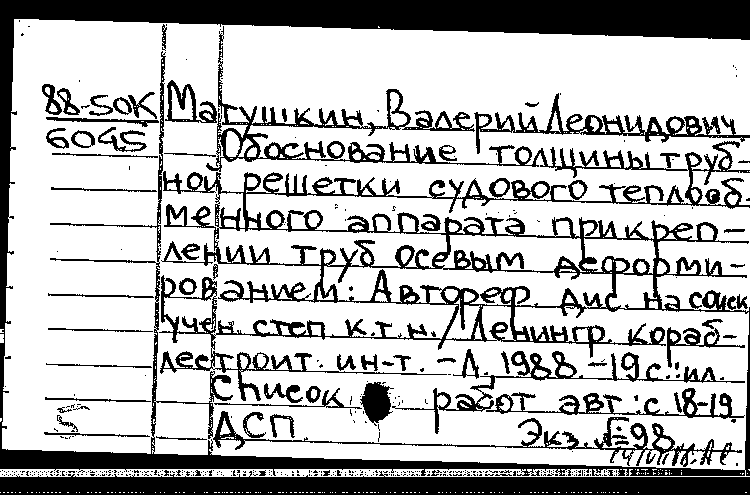 88-50К Матушкин, Валерий Леонидович
6045 Обоснование толщины труб-
ной решетки судового теплооб-
менного аппарата прикреп-
лении труб осевым деформи-
рованием: Автореф. дис. на соиск
учен. степ. к.т.н. / Ленингр. кораб-
лестроит. ин-т. - Л., 1988. - 19 с.: ил.
Список работ авт.: с. 18-19.
5 ДСП Экз. № 98